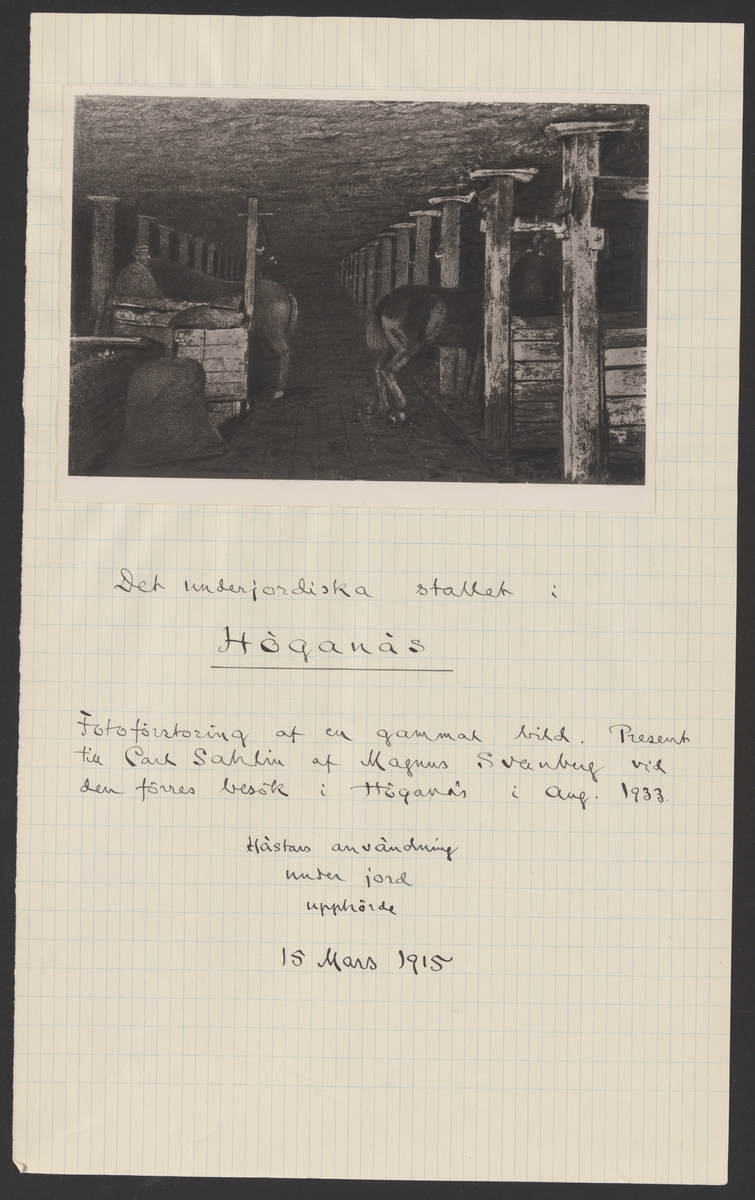 Det underjordiska stallet i
Höganäs
Fotoförstoring af en gammal bild. Present
till Carl Sahlin af Magnus Svanberg vid
den förres besök i Höganäs i Aug. 1933.
Hästars användning
under jord
upphörde
15 Mars 1915